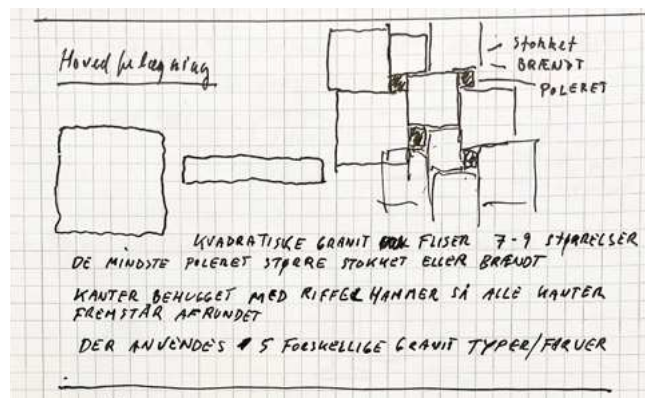 Hovedbelægning
Stokket
BRÆNDT
POLERET
KVADRATISKE GRANIT FLISER 7-9 STØRRELSER
DE MINDSTE POLERET STØRRE STOKKET ELLER BRÆNDT
KANTER BEHUGGET MED RIFFELHAMMER SÅ ALLE KANTER
FREMSTÅR AFRUNDET
DER ANVENDES 5 FORSKELLIGE GRANIT TYPER/FARVER